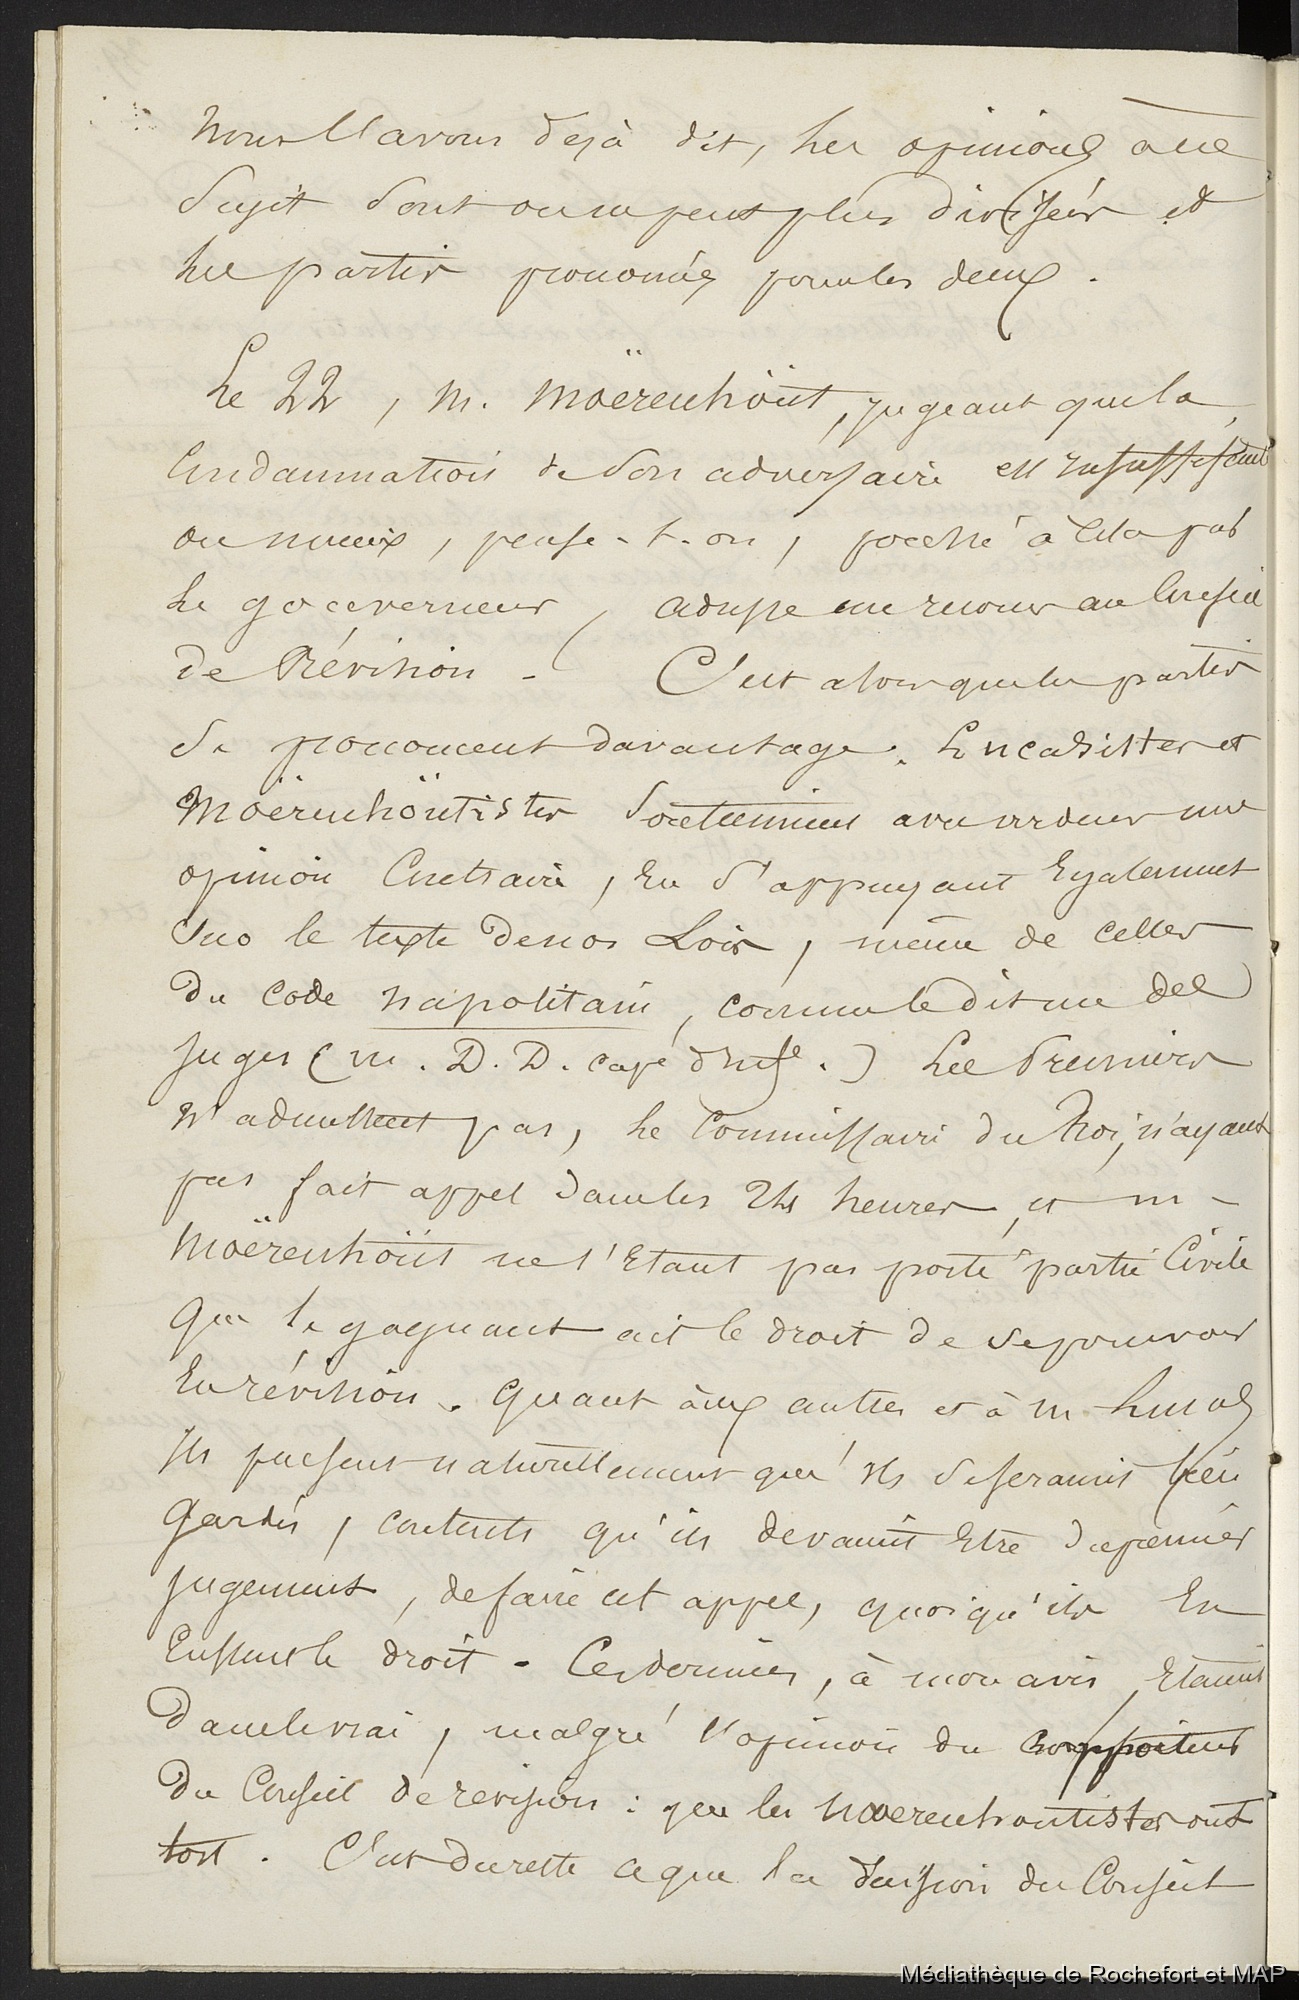 Nous l'avons déjà dit, les opinions à ce
sujet sont on ne peut plus divisées et
les partis prononcés pour les deux.
Le 22, M. Moërenhöut, jugeant que la
Condamnation de son adversaire est insuffisante
ou mieux, pense-t-on, poussé à cela par
le gouverneur, adresse un recours au Conseil
de Révision - C'est alors que les partis
se prononcent davantage. Lucasistes et
Moërenhöutistes soutiennent avec ardeur une
opinion Contraire, En s'appuyant Egalement
sur le texte de nos Lois, même de celles
du code napolitain, comme le dit un des
juges (M. D. D. cape d'infe.) Les Premiers
n'admettent pas, le Commissaire du Roi, n'ayant
pas fait appel dans les 24 heures, et M-
Moërenhöut ne s'Etant pas porté partie Civile
que le gagnant ait le droit de se pourvoir
En révision. Quant aux autres et à M Lucas
ils pensent naturellement qu'ils se seraient bien
Gardés, contents qu'ils devaient Etre du premier
jugement, de faire cet appel, quoiqu'ils En
Eussent le droit - Ces derniers, à mon avis, Etaient
dans le vrai, malgré l'opinion du rapporteur
du Conseil de revision : que les Moerenhoutistes ont
tort. C'est du reste ce que la décision du Conseil
Médiathèque de Rochefort et MAP